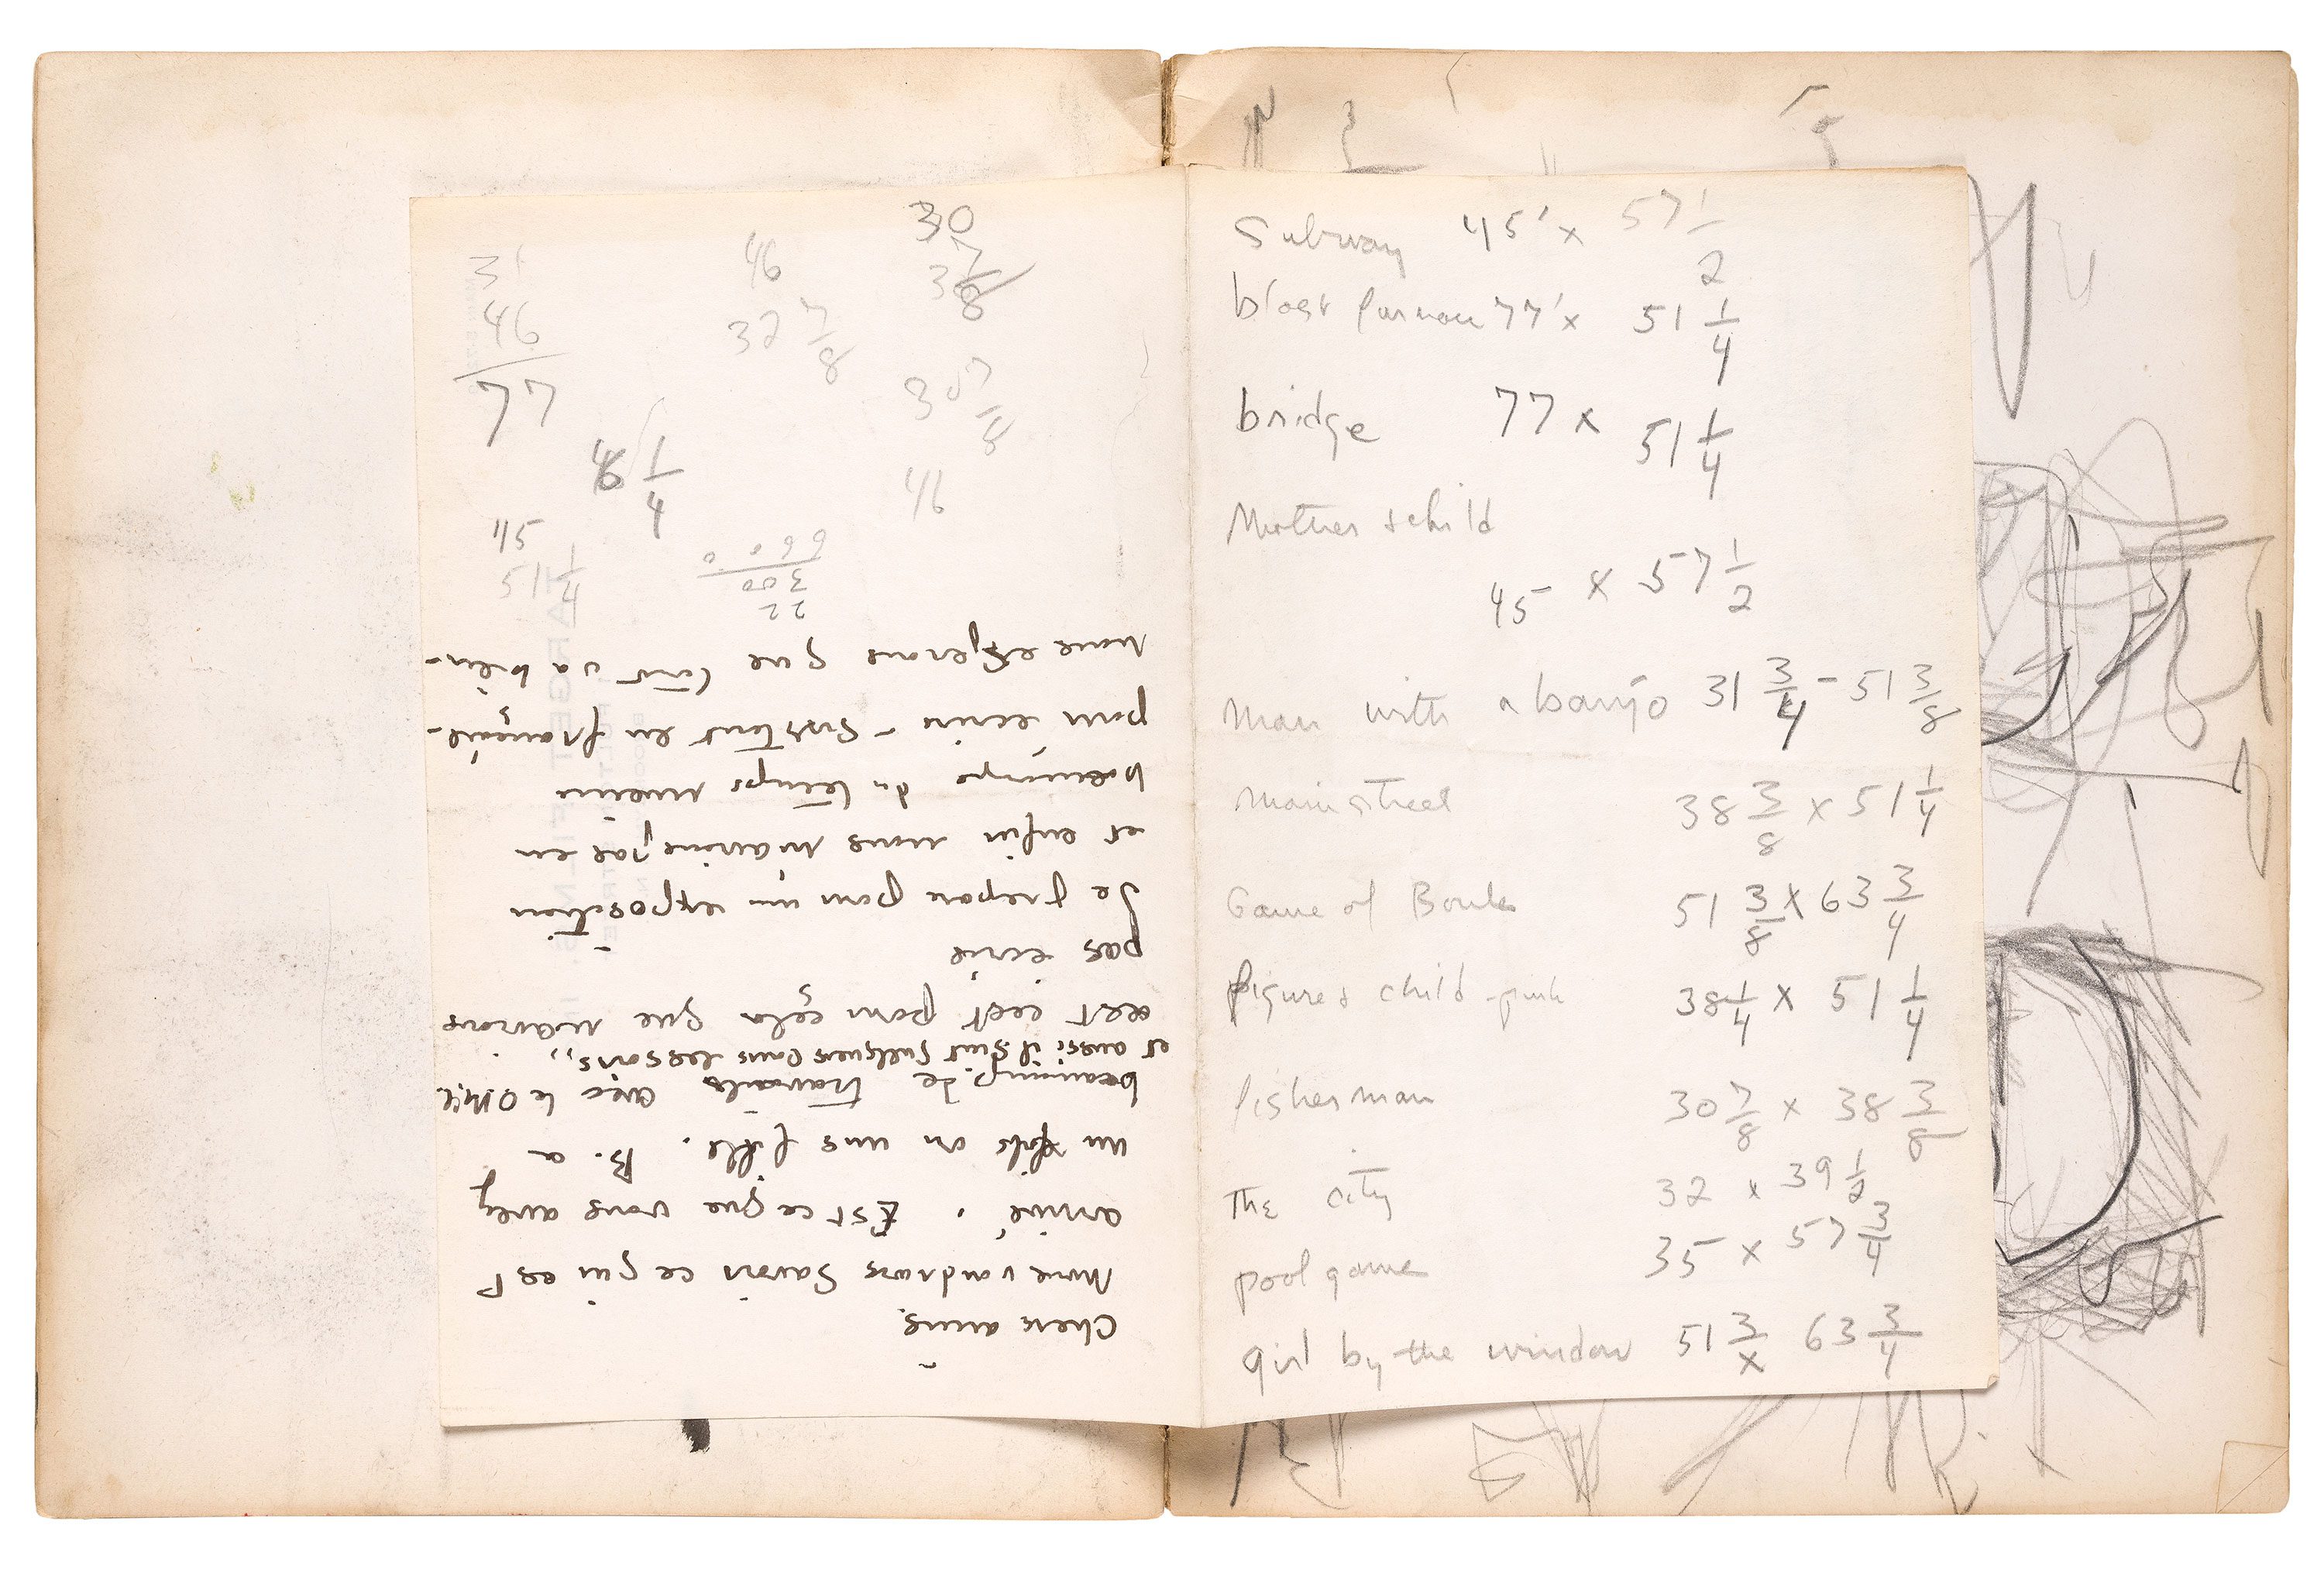 30
31
46
7/8
46
32 7/8
77
46
1/4
45
51 1/4
22
300
6600
Chers amis,
Nous voudrions savoir ce qui est
arrivé. Est ce que vous avez
un fils ou une fille. B. a
beaucoup de travails avec le
et aussi il faut quelques lessons,
c'est pour cela que n'avons
pas écrie
Je prepare pour un exposition
et enfin nous n'avions pas en
beaucoup du temps
pour ecrire - surtout en français -
nous esperons que tout va bien -
Subway 45' x 57 1/2
blast furnace 77' x 51 1/4
bridge 77 x 51 1/4
Mother + child
45 x 57 1/2
Man with a banjo 31 3/4 - 51 3/8
main street 38 3/8 x 51 1/4
Game of Boule 51 3/8 x 63 3/4
figure + child - pink 38 1/4 x 51 1/4
fisherman 30 7/8 x 38 3/8
The city 32 x 39 1/2
pool game 35 x 57 3/4
girl by the window 51 3/x 63 3/4